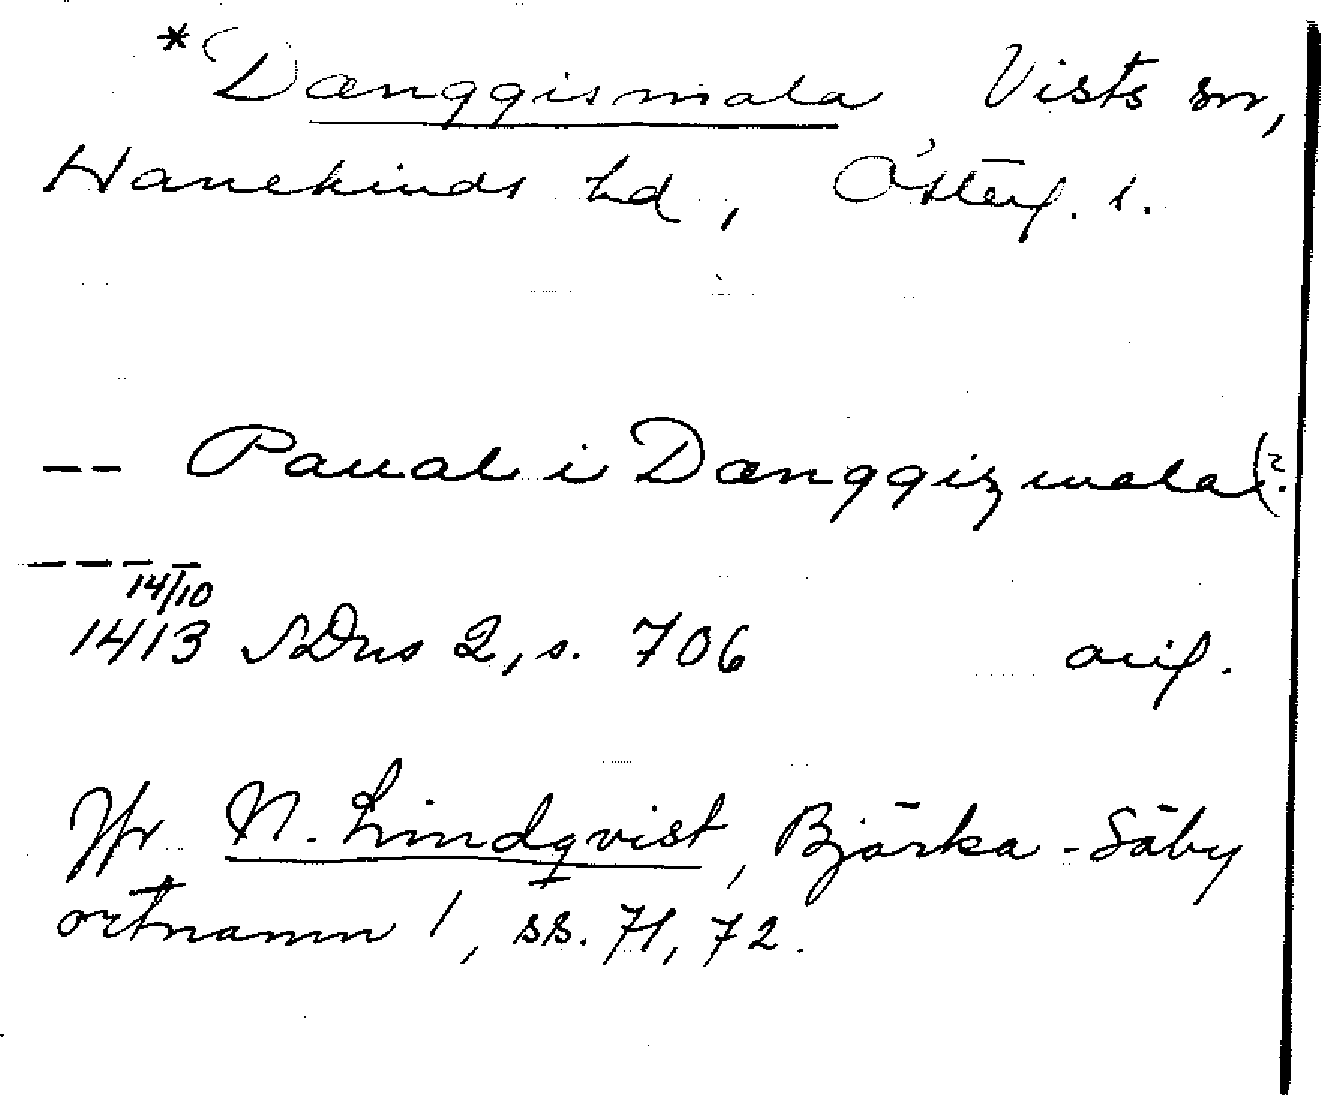 *Dænggismala Vists sn,
Hanekinds hd, Österg. l.
-- Paual i Dænggizmala (?
----
14/10
1413 SDns 2, s. 706 orig.
Jfr N. Lindqvist, Bjärka-Säby
ortnamn 1, ss. 71, 72.